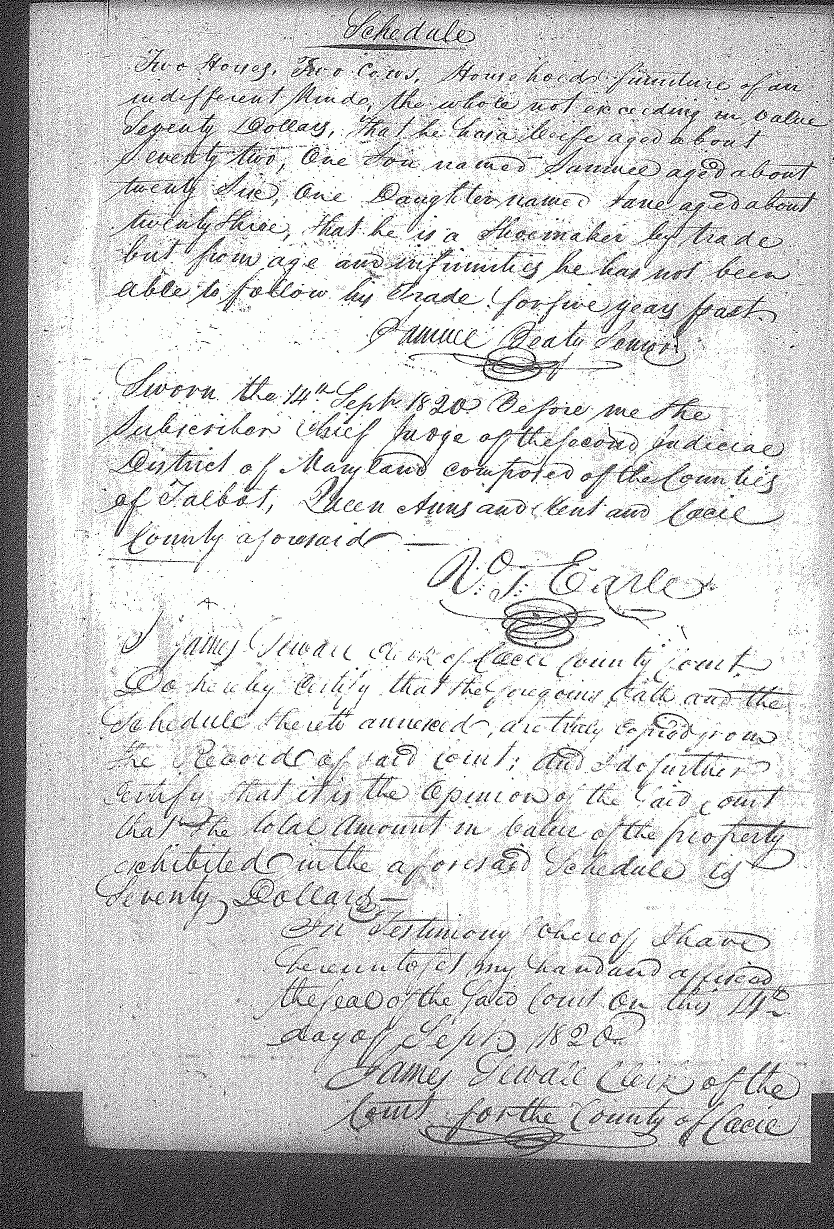 Schedule
Two Horses, Two Cows, Household furniture of an
indifferent kinde, the whole not exceeding in value
Seventy Dollars, that he has a Wife aged about
Seventy two, One Son named Samuel aged about
twenty Six, One Daughter named Jane aged about
twenty three, that he is a Shoemaker by trade
but from age and infirmities he has not been
able to follow his trade for five years past
Samuel Beaty Senior
Sworn the 14th Sept 1820 Before me the
Subscriber Chief Judge of the Second Judicial
District of Maryland composed of the Counties
of Talbot, Queen Anns and Kent and Cecil
County aforesaid —
R.d T. Earle
I James Sewall Clerk of Cecil County Court,
Do hereby certify that the foregoing Oath and the
Schedule thereto annexed, are truly copied from
the Record of said Court; and I do further
certify that it is the Opinion of the Said Court
that the total Amount in Value of the property
exhibited in the aforesaid Schedule is
Seventy Dollars —
In Testimony whereof I have
hereunto set my hand and affixed
the Seal of the Said Court on this 14th
day of Sept 1820
James Sewall Clerk of the
Court for the County of Cecil